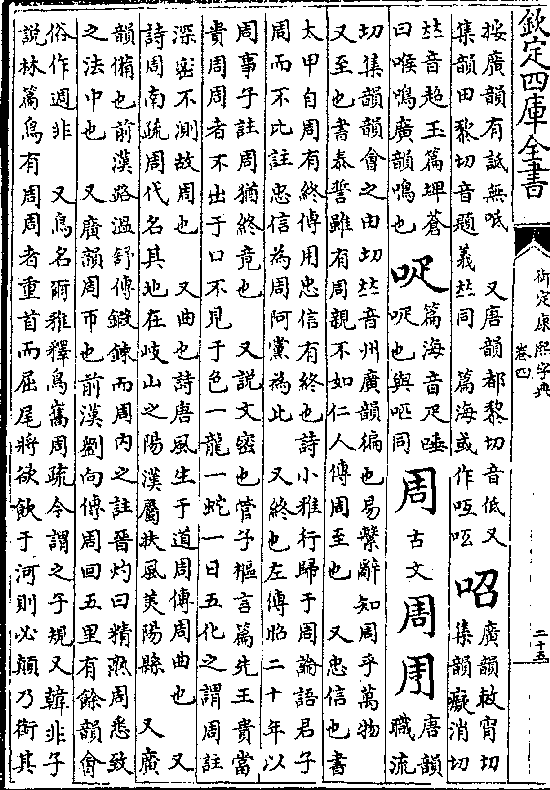 欽定四庫全書
御定康熙字典
卷四
二十五
按廣韻有詆無呧 又唐韻都黎切音低又
集韻田黎切音題義𠀤同 篇海或作
𠰉
廣韻敕宵切
集韻癡消切
𠀤音超玉篇埤蒼
曰喉鳴廣韻鳴也
篇海音疋唾
也與 同
周
古文
周
唐韻
職流
切集韻韻會之由切𠀤音州廣韻徧也易繫辭知周乎萬物
又至也書泰誓雖有周親不如仁人傳周至也 又忠信也書
太甲自周有終傳用忠信有終也詩小雅行歸于周論語君子
周而不比註忠信為周阿黨為比 又終也左傳昭二十年以
周事子註周猶終竟也 又說文密也管子樞言篇先王貴當
貴周周者不出于口不見于色一龍一蛇一日五化之謂周註
深密不測故周也 又曲也詩唐風生于道周傳周曲也 又
詩周南疏周代名其地在岐山之陽漢屬扶風美陽縣 又廣
韻備也前漢路溫舒傳鍛鍊而周内之註晉灼曰精熟周悉致
之法中也 又廣韻周帀也前漢劉向傳周回五里有餘韻會
俗作週非 又鳥名爾雅釋鳥巂周疏今謂之子規又韓非子
說林篇鳥有周周者重首而屈尾將欲飲于河則必顛乃銜其